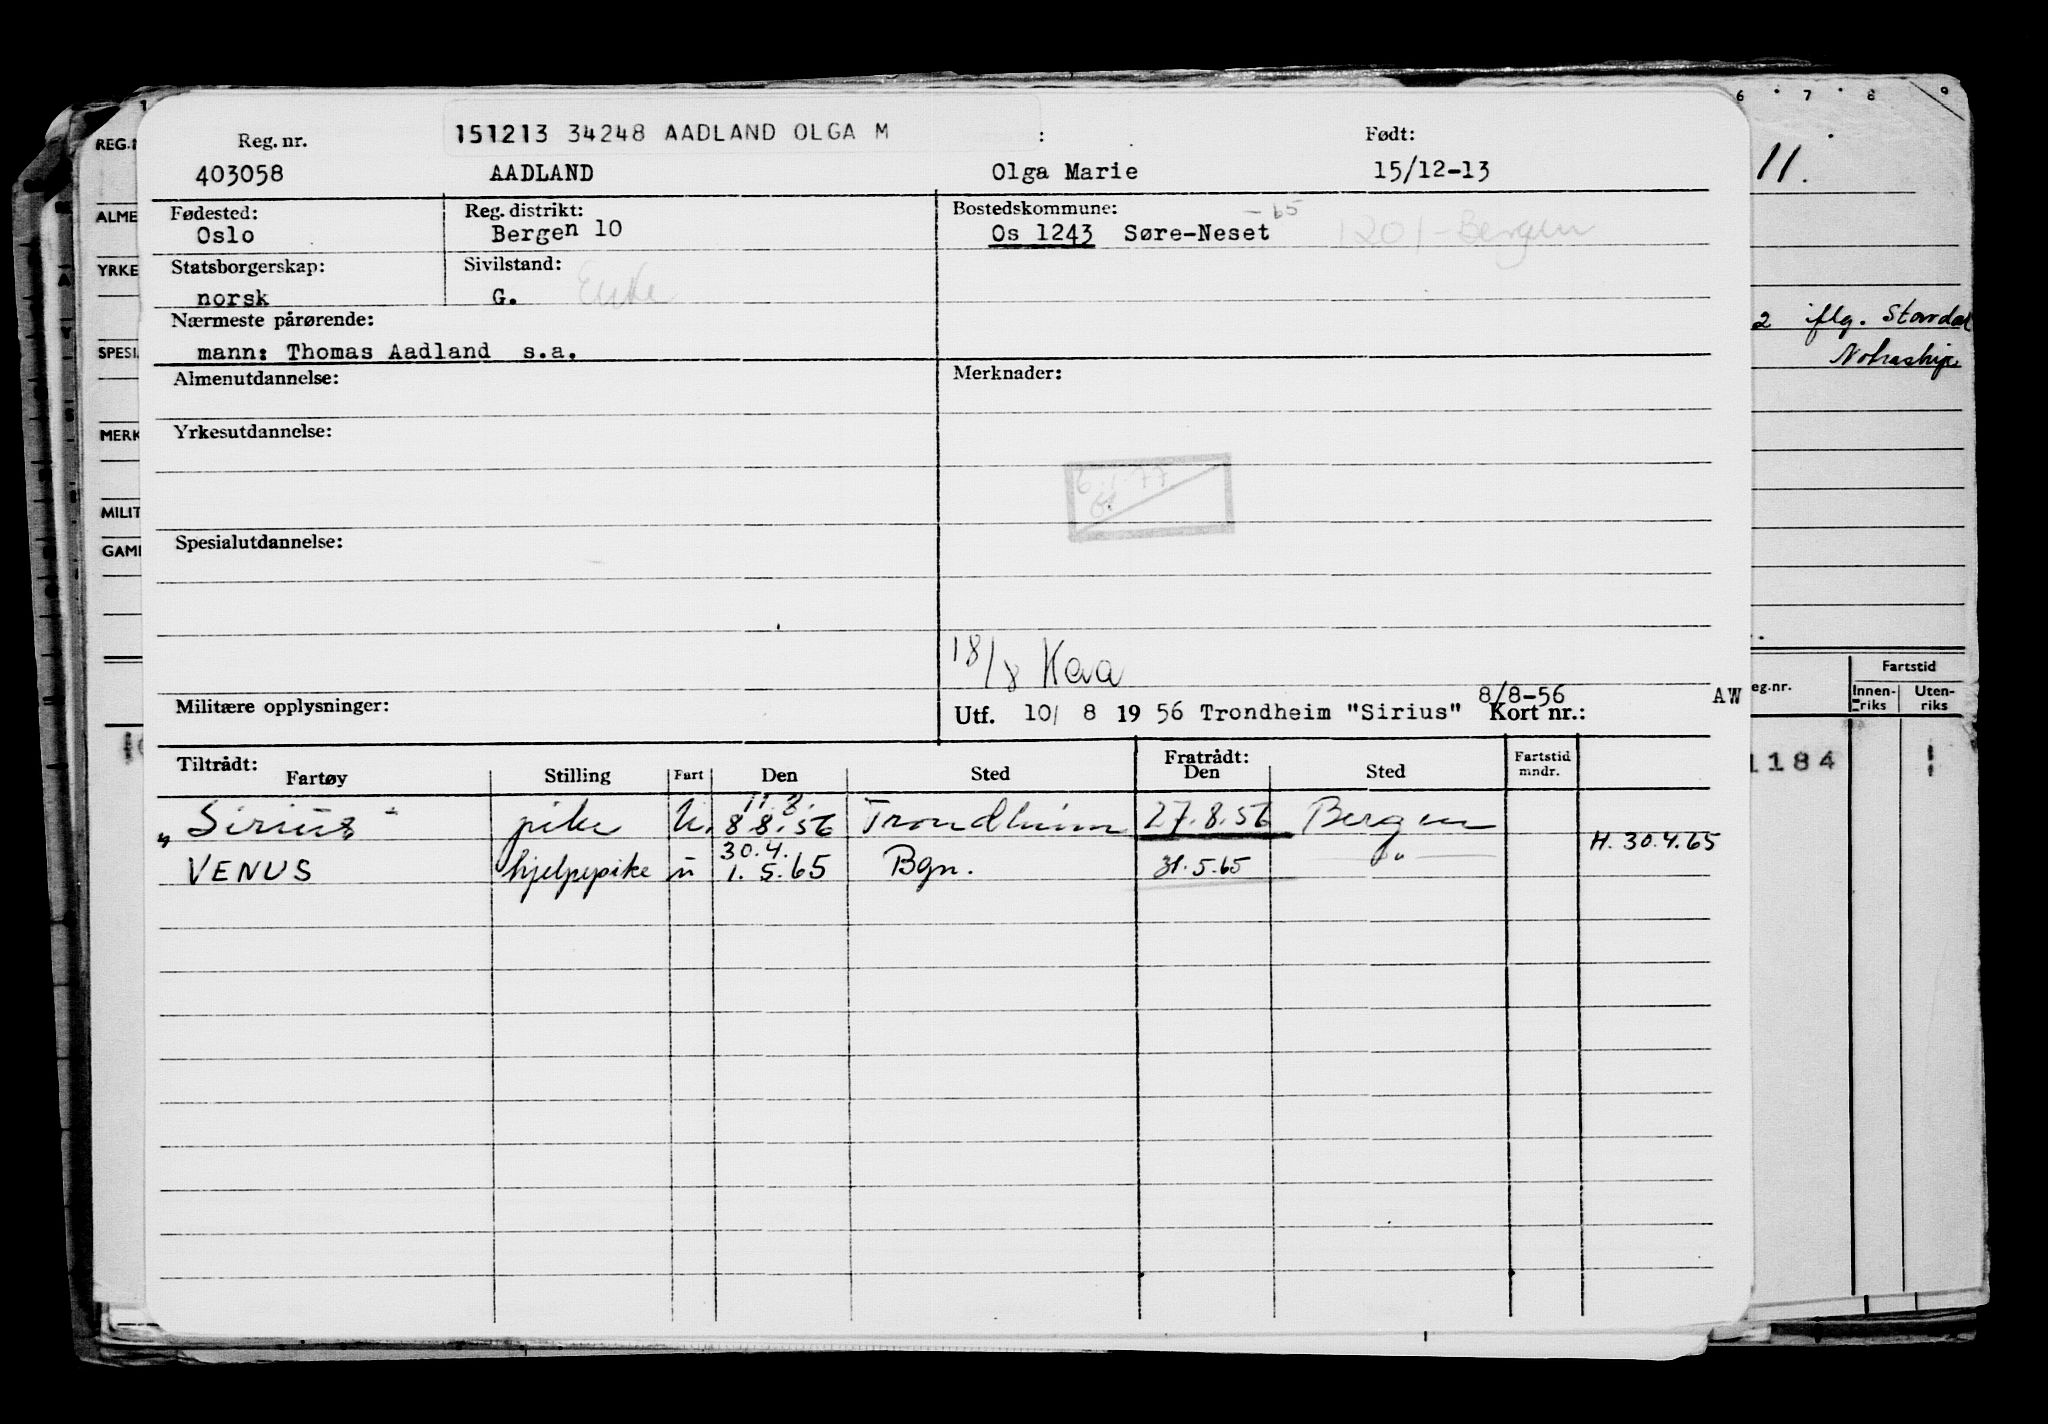 151213 34248 AADLAND OLGA M
Reg. nr. : Født:
403058 AADLAND Olga Marie 15/12-13
Fødested: Reg. distrikt: Bostedskommune: -65
Oslo Bergen 10 Os 1243 Søre-Neset 1201-Bergen
Statsborgerskap: Sivilstand:
norsk G. Enke
Nærmeste pårørende:
mann: Thomas Aadland s.a.
Almenutdannelse: Merknader:
Yrkesutdannelse:
6.1.77
Spesialutdannelse:
18/8
8/8-56
Militære opplysninger: Utf. 10/ 8 19 56 Trondheim "Sirius" Kort nr.: AW
Tiltrådt: Fratrådt:
Fartøy Stilling Fart Den Sted Den Sted Fartstid mndr.
11.8.
"Sirius" pike U. 8.8.56 Trondheim 27.8.56 Bergen
30.4. H. 30.4.65
VENUS hjelpepike u 1.5.65 Bgn. 31.5.65 — " —
REG.
ALME
YRKE
SPESI
MERK
MILIT
GAML
6 7 8 9
11.
2 iflg. Standar
Notraship
eg.nr. Fartstid
Innen-riks Uten-riks
1184